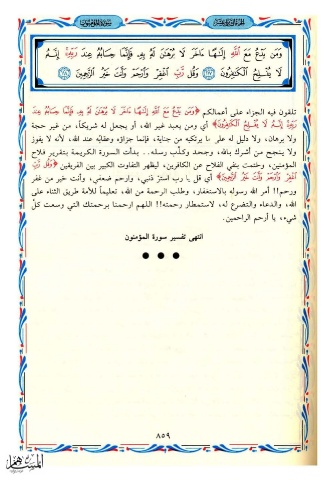 وَمَن يَدْعُ مَعَ اللَّهِ إِلَـٰهًا ءَاخَرَ لَا بُرْهَـٰنَ لَهُ بِهِ فَإِنَّمَا حِسَابُهُ عِندَ رَبِّهِ إِنَّهُ
لَا يُفْلِحُ الْكَـٰفِرُونَ ﴿١١٧﴾ وَقُل رَّبِّ اغْفِرْ وَارْحَمْ وَأَنتَ خَيْرُ الرَّٰحِمِينَ ﴿١١٨﴾
تلقون فيه الجزاء على أعمالكم ﴿وَمَن يَدْعُ مَعَ اللَّهِ إِلَـٰهًا ءَاخَرَ لَا بُرْهَـٰنَ لَهُ بِهِ فَإِنَّمَا حِسَابُهُ عِندَ
رَبِّهِ إِنَّهُ لَا يُفْلِحُ الْكَـٰفِرُونَ﴾ أي ومن يعبد غير الله، أو يجعل له شريكاً، من غير حجة
ولا برهان، ولا دليل له على ما يرتكبه من جناية، فإنما جزاؤه وعقابه عند الله، لأنه لا يفوز
ولا ينجح من أشرك بالله، وجحد وكذَّب رسله.. بدأت السورة الكريمة بتقرير فلاح
المؤمنين، وختمت بنفي الفلاح عن الكافرين، ليظهر التفاوت الكبير بين الفريقين ﴿وَقُل رَّبِّ
اغْفِرْ وَارْحَمْ وَأَنتَ خَيْرُ الرَّٰحِمِينَ﴾ أي قل يا رب استرْ ذنبي، وارحم ضعفي، وأنت خير من غفر
ورحم!! أمر الله رسوله بالاستغفار، وطلب الرحمة من الله، تعليماً للأمة طريق الثناء على
الله، والدعاء والتضرع له، لاستمطار رحمته!! اللهم ارحمنا برحمتك التي وسعت كلَّ
شيء، يا أرحم الراحمين.
انتهى تفسير سورة المؤمنون
٨٥٩